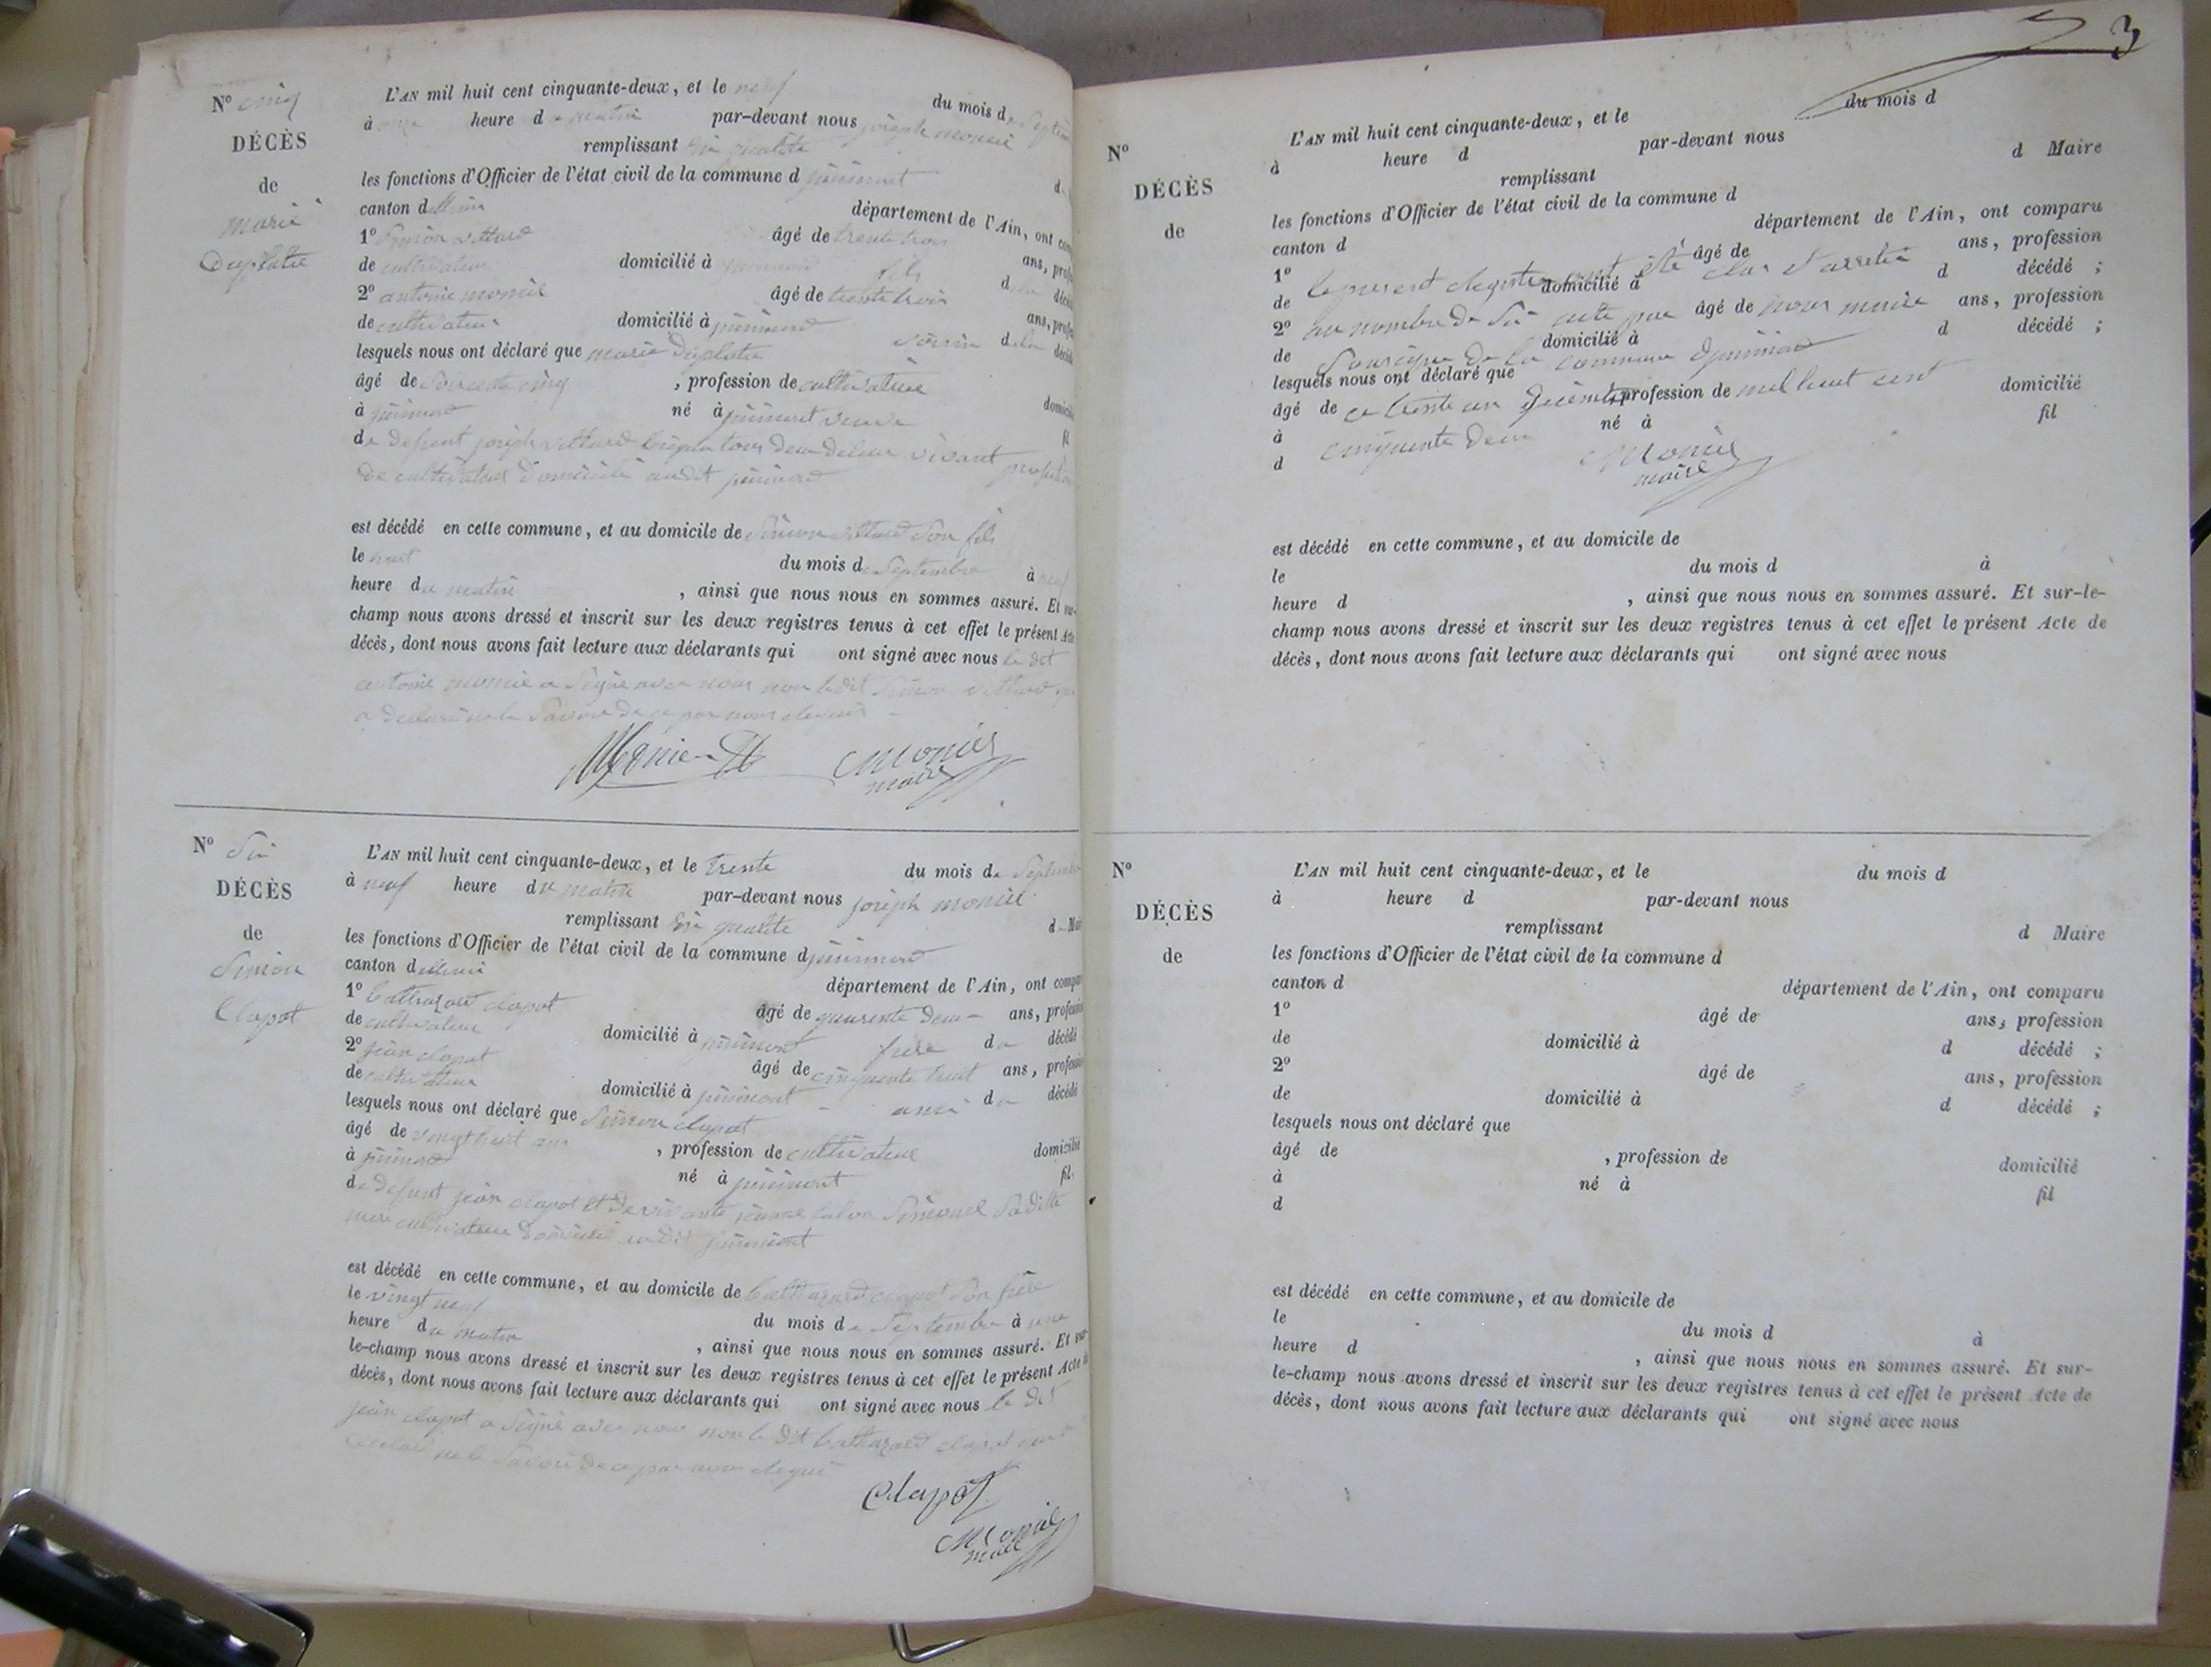 N° cinq
DÉCÈS
de
marie
Duplatre
L'AN mil huit cent cinquante-deux, et le neuf du mois de Septem
à onze heure du matin par-devant nous joseph monier
remplissant En qualité
les fonctions d'Officier de l'état civil de la commune d
canton d département de l'Ain, ont com
1° Simon vittard âgé de trente trois ans, profes
de cultivateur domicilié à fils de la décéd
2° antoine monier âgé de trente trois ans, profes
de cultivateur domicilié à voisin de la décéd
lesquels nous ont déclaré que marie Duplatre
âgé de Soixante cinq , profession de cultivateur domicilié
à né à veuve fil
de defunt joseph vittard tous deux de leur vivant profession
de cultivateur domicilié audit
est décédé en cette commune, et au domicile de Simon vittard Son fils
le huit du mois de Septembre à neuf
heure du matin , ainsi que nous nous en sommes assuré. Et sur-
champ nous avons dressé et inscrit sur les deux registres tenus à cet effet le présent Acte
décès, dont nous avons fait lecture aux déclarants qui ont signé avec nous le dit
antoine monier a Signé avec nous non le dit Simon vittard qui
a declaré ne le Savoir de ce par nous
Monier
Monier
maire
N° Six
DÉCÈS
de
Simon
Clapot
L'AN mil huit cent cinquante-deux, et le trente du mois de Septembre
à neuf heure du matin par-devant nous joseph monier
remplissant En qualité de Mai
les fonctions d'Officier de l'état civil de la commune d
canton d département de l'Ain, ont compa
1° Clapot âgé de quarente deux ans, profession
de cultivateur domicilié à frère du décédé
2° jean clapot âgé de cinquante huit ans, profession
de cultivateur domicilié à ami du décédé
lesquels nous ont déclaré que Simon clapot
âgé de vingt huit ans , profession de cultivateur domicilié
à né à fils
de defunt jean clapot et de vivante Sadite
mere cultivateur domicilié audit
est décédé en cette commune, et au domicile de clapot Son frère
le vingt neuf du mois de Septembre à une
heure du matin , ainsi que nous nous en sommes assuré. Et sur-
le-champ nous avons dressé et inscrit sur les deux registres tenus à cet effet le présent Acte de
décès, dont nous avons fait lecture aux déclarants qui ont signé avec nous le dit
jean clapot a Signé avec nous non le dit clapot qui a
declaré ne le Savoir de ce par nous
Clapot
Monier
maire
3
N°
DÉCÈS
de
L'AN mil huit cent cinquante-deux, et le du mois d
à heure d par-devant nous
remplissant d Maire
les fonctions d'Officier de l'état civil de la commune d
canton d département de l'Ain, ont comparu
1° âgé de ans, profession
de domicilié à d décédé ;
le present registre a été clos et arreté
2° âgé de ans, profession
au nombre de Six acte par nous maire
de domicilié à d décédé ;
Soussigné de la commune
lesquels nous ont déclaré que
âgé de , profession de domicilié
ce trente un Décembre mil huit cent
à né à fil
d
cinquante deux
Monier
maire
est décédé en cette commune, et au domicile de
le du mois d à
heure d , ainsi que nous nous en sommes assuré. Et sur-le-
champ nous avons dressé et inscrit sur les deux registres tenus à cet effet le présent Acte de
décès, dont nous avons fait lecture aux déclarants qui ont signé avec nous
N°
DÉCÈS
de
L'AN mil huit cent cinquante-deux, et le du mois d
à heure d par-devant nous
remplissant d Maire
les fonctions d'Officier de l'état civil de la commune d
canton d département de l'Ain, ont comparu
1° âgé de ans, profession
de domicilié à d décédé ;
2° âgé de ans, profession
de domicilié à d décédé ;
lesquels nous ont déclaré que
âgé de , profession de domicilié
à né à fil
d
est décédé en cette commune, et au domicile de
le du mois d à
heure d , ainsi que nous nous en sommes assuré. Et sur-
le-champ nous avons dressé et inscrit sur les deux registres tenus à cet effet le présent Acte de
décès, dont nous avons fait lecture aux déclarants qui ont signé avec nous